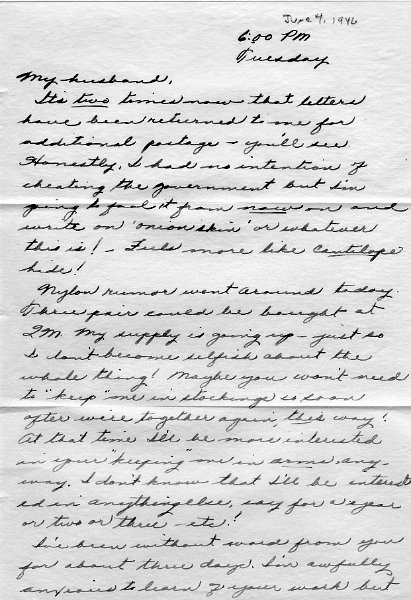 June 4, 1946
6:00 PM
Tuesday
My husband,
Its two times now that letters
have been returned to me for
additional postage - you'll see
Honestly, I had no intention of
cheating the government but I'm
going to fool it from now on and
write on 'onion skin' or whatever
this is! - Feels more like cantelope
hide!
Nylon rumor went around today.
Three pair could be bought at
I.M. My supply is going up - just so
I don't become selfish about the
whole thing! Maybe you won't need
to "keep" me in stockings so soon
after we're together again, this way!
At that time I'll be more interested
in your "keeping" me in arms, any-
way. I don't know that I'll be interest
ed in anything else, say for a year
or two or three - etc!
I've been without word from you
for about three days. I'm awfully
anxious to learn of your work but